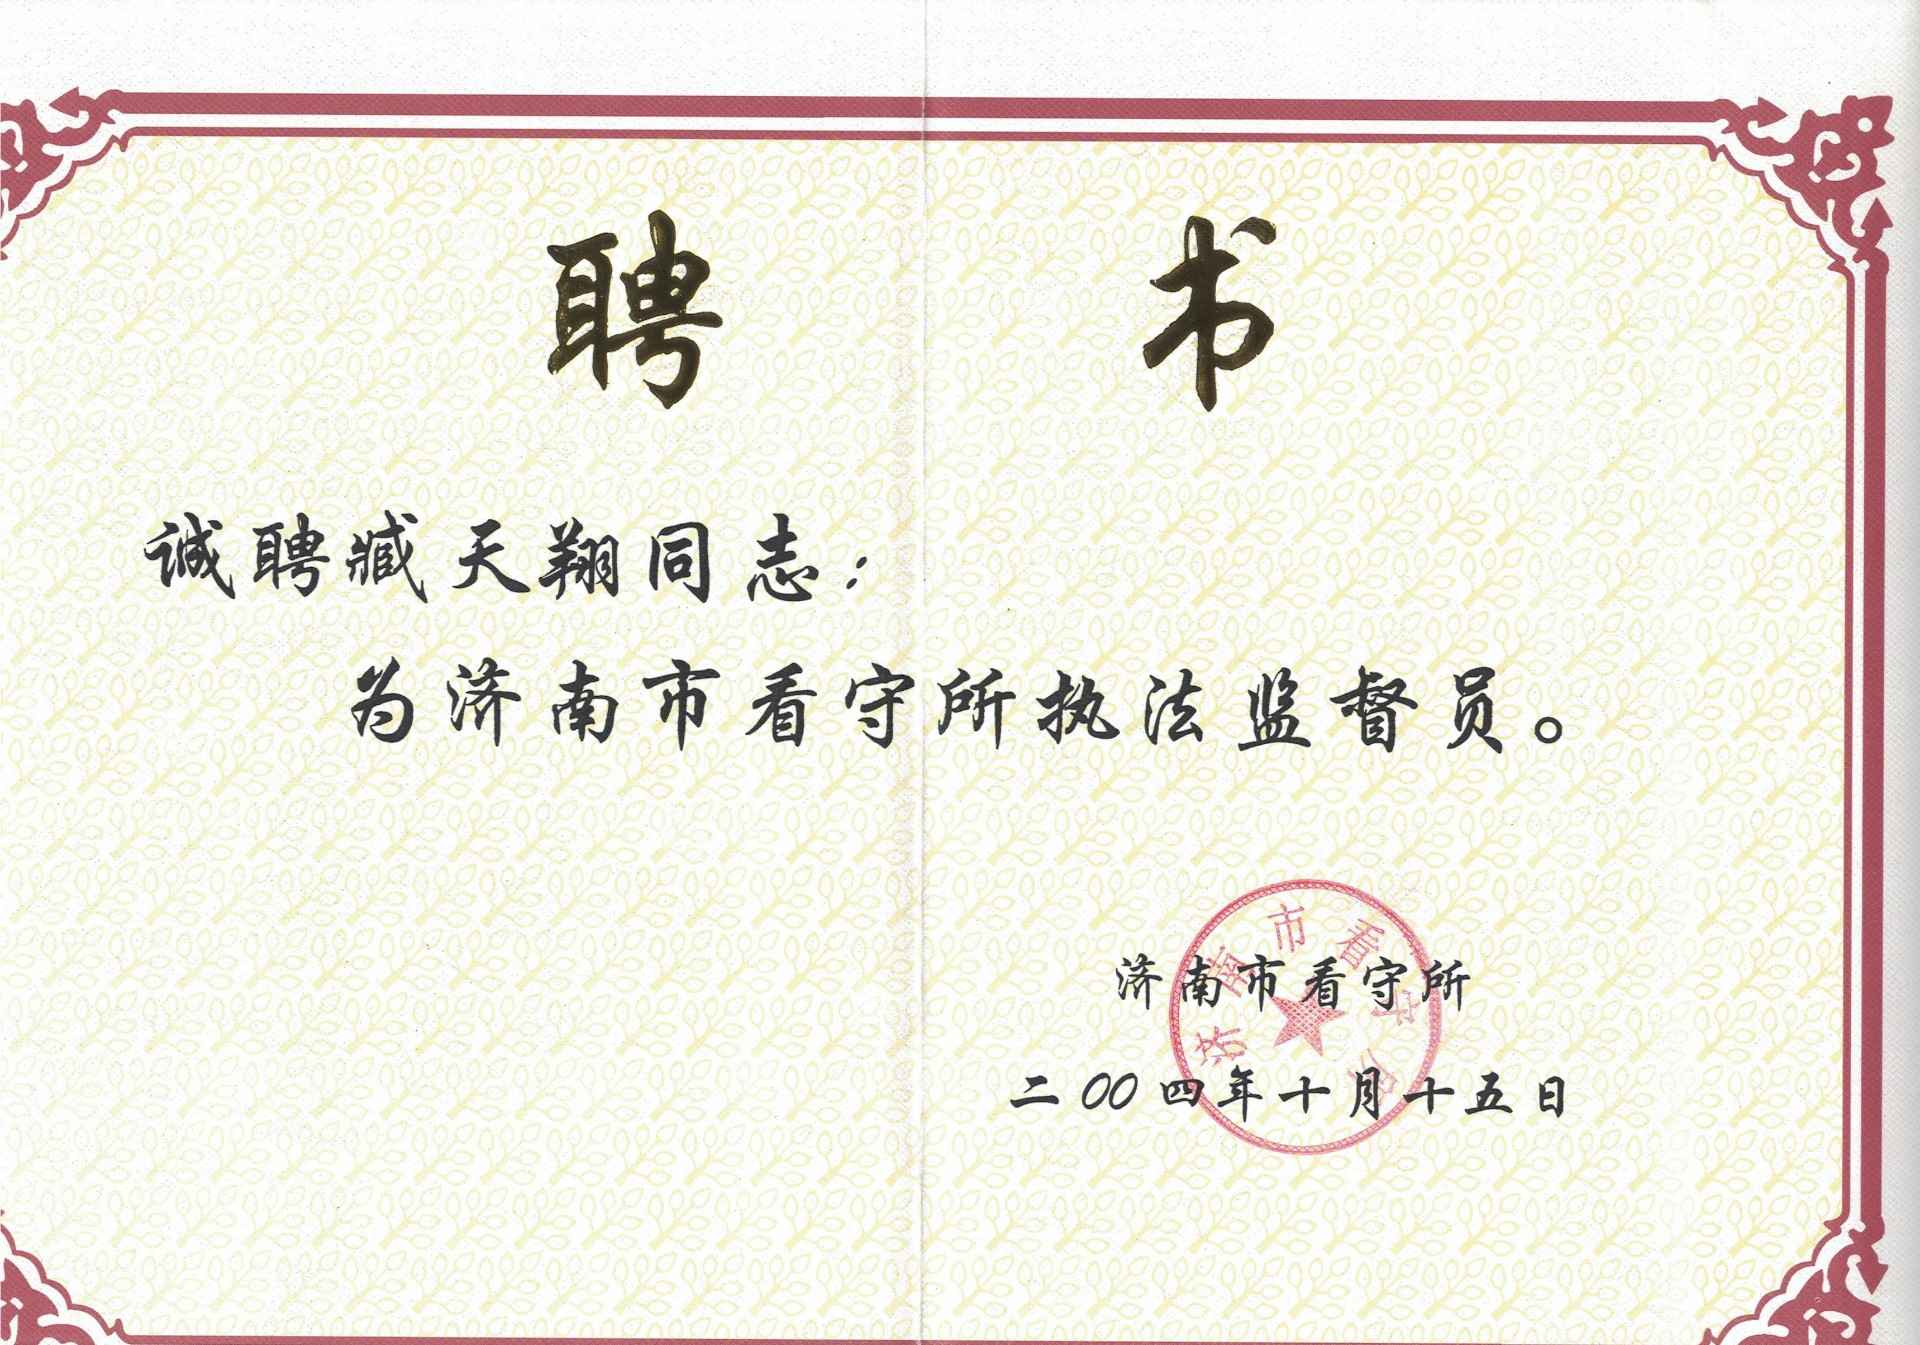 聘书
诚聘臧天翔同志：
为济南市看守所执法监督员。
济南市看守所
济南市看守所
二〇〇四年十月十五日